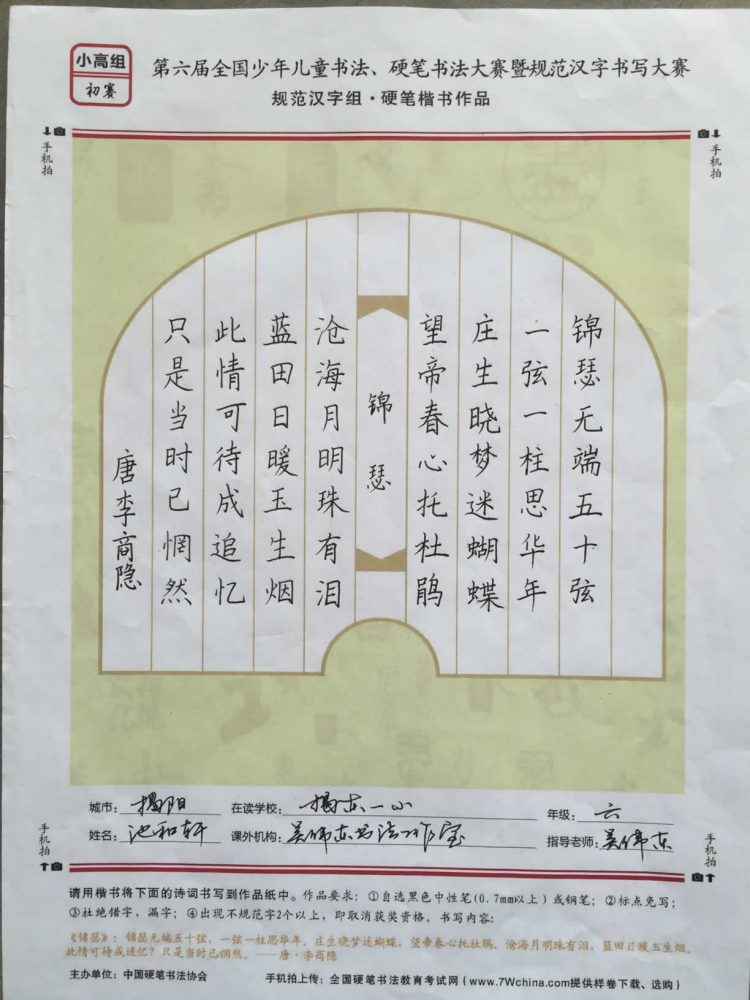 小高组
初赛
第六届全国少年儿童书法、硬笔书法大赛暨规范汉字书写大赛
规范汉字组·硬笔楷书作品
手机拍
手机拍
锦瑟无端五十弦
一弦一柱思华年
庄生晓梦迷蝴蝶
望帝春心托杜鹃
锦瑟
沧海月明珠有泪
蓝田日暖玉生烟
此情可待成追忆
只是当时已惘然
唐李商隐
城市：揭阳 在读学校：揭东一小 年级：六
姓名：池和轩 课外机构：吴伟东书法工作室 指导老师：吴伟东
手机拍
手机拍
请用楷书将下面的诗词书写到作品纸中。作品要求：①自选黑色中性笔(0.7mm以上)或钢笔；②标点免写；
③杜绝错字、漏字；④出现不规范字2个以上，即取消获奖资格。书写内容：
《锦瑟》：锦瑟无端五十弦，一弦一柱思华年。庄生晓梦迷蝴蝶，望帝春心托杜鹃。沧海月明珠有泪，蓝田日暖玉生烟。
此情可待成追忆？只是当时已惘然。——唐·李商隐
主办单位：中国硬笔书法协会 手机拍上传：全国硬笔书法教育考试网（www.7Wchina.com提供样卷下载、选购）